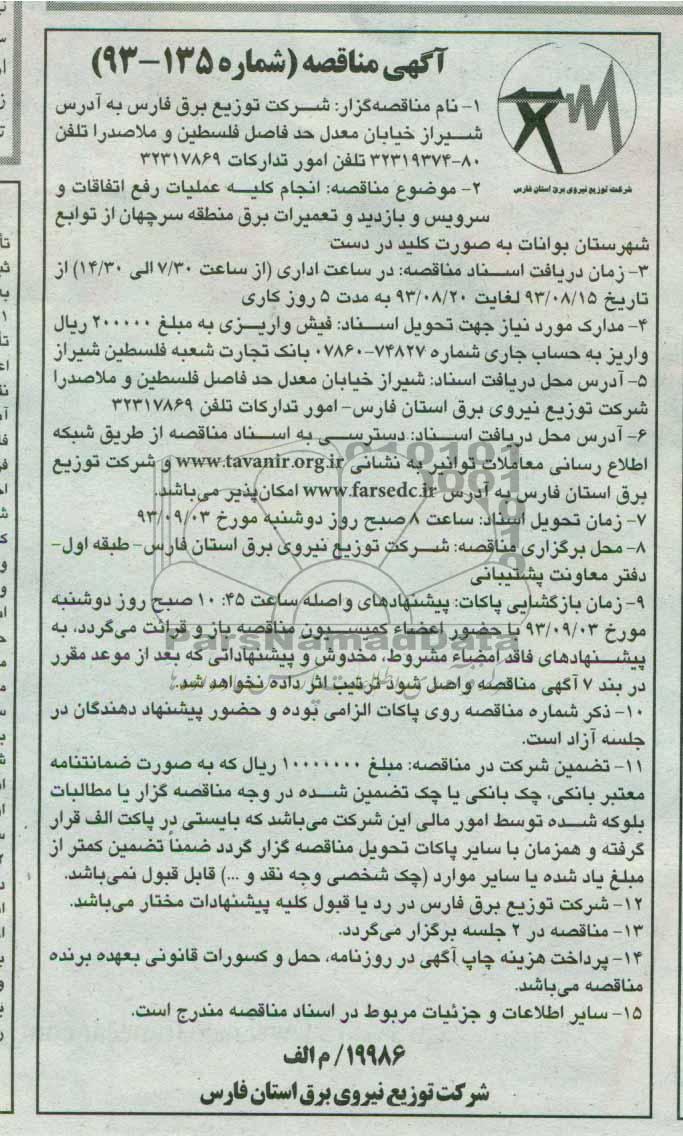 آگهی مناقصه (شماره ۱۳۵-۹۳)
شرکت توزیع نیروی برق استان فارس
۱- نام مناقصه‌گزار: شرکت توزیع برق فارس به آدرس
شیراز خیابان معدل حد فاصل فلسطین و ملاصدرا تلفن
۸۰-۳۲۳۱۹۳۷۴ تلفن امور تدارکات ۳۲۳۱۷۸۶۹
۲- موضوع مناقصه: انجام کلیه عملیات رفع اتفاقات و
سرویس و بازدید و تعمیرات برق منطقه سرچهان از توابع
شهرستان بوانات به صورت کلید در دست
۳- زمان دریافت اسناد مناقصه: در ساعت اداری (از ساعت ۷/۳۰ الی ۱۴/۳۰) از
تاریخ ۹۳/۰۸/۱۵ لغایت ۹۳/۰۸/۲۰ به مدت ۵ روز کاری
۴- مدارک مورد نیاز جهت تحویل اسناد: فیش واریزی به مبلغ ۲۰۰۰۰۰ ریال
واریز به حساب جاری شماره ۷۴۸۲۷-۰۷۸۶۰ بانک تجارت شعبه فلسطین شیراز
۵- آدرس محل دریافت اسناد: شیراز خیابان معدل حد فاصل فلسطین و ملاصدرا
شرکت توزیع نیروی برق استان فارس- امور تدارکات تلفن ۳۲۳۱۷۸۶۹
۶- آدرس محل دریافت اسناد: دسترسی به اسناد مناقصه از طریق شبکه
اطلاع رسانی معاملات توانیر به نشانی www.tavanir.org.ir و شرکت توزیع
برق استان فارس به آدرس www.farsedc.ir امکان‌پذیر می‌باشد.
۷- زمان تحویل اسناد: ساعت ۸ صبح روز دوشنبه مورخ ۹۳/۰۹/۰۳
۸- محل برگزاری مناقصه: شرکت توزیع نیروی برق استان فارس- طبقه اول-
دفتر معاونت پشتیبانی
۹- زمان بازگشایی پاکات: پیشنهادهای واصله ساعت ۱۰:۴۵ صبح روز دوشنبه
مورخ ۹۳/۰۹/۰۳ با حضور اعضاء کمیسیون مناقصه باز و قرائت می‌گردد، به
پیشنهادهای فاقد امضاء مشروط، مخدوش و پیشنهاداتی که بعد از موعد مقرر
در بند ۷ آگهی مناقصه واصل شود ترتیب اثر داده نخواهد شد.
۱۰- ذکر شماره مناقصه روی پاکات الزامی بوده و حضور پیشنهاد دهندگان در
جلسه آزاد است.
۱۱- تضمین شرکت در مناقصه: مبلغ ۱۰۰۰۰۰۰۰ ریال که به صورت ضمانتنامه
معتبر بانکی، چک بانکی یا چک تضمین شده در وجه مناقصه گزار یا مطالبات
بلوکه شده توسط امور مالی این شرکت می‌باشد که بایستی در پاکت الف قرار
گرفته و همزمان با سایر پاکات تحویل مناقصه گزار گردد ضمناً تضمین کمتر از
مبلغ یاد شده یا سایر موارد (چک شخصی وجه نقد و ...) قابل قبول نمی‌باشد.
۱۲- شرکت توزیع برق فارس در رد یا قبول کلیه پیشنهادات مختار می‌باشد.
۱۳- مناقصه در ۲ جلسه برگزار می‌گردد.
۱۴- پرداخت هزینه چاپ آگهی در روزنامه، حمل و کسورات قانونی بعهده برنده
مناقصه می‌باشد.
۱۵- سایر اطلاعات و جزئیات مربوط در اسناد مناقصه مندرج است.
۱۹۹۸۶/ م الف
شرکت توزیع نیروی برق استان فارس
ParsNamadData